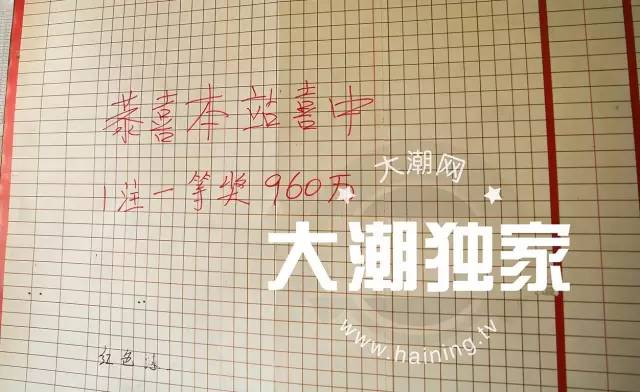 恭喜本站喜中
1注一等奖960万
大潮网
大潮独家
www.haining.tv
红色